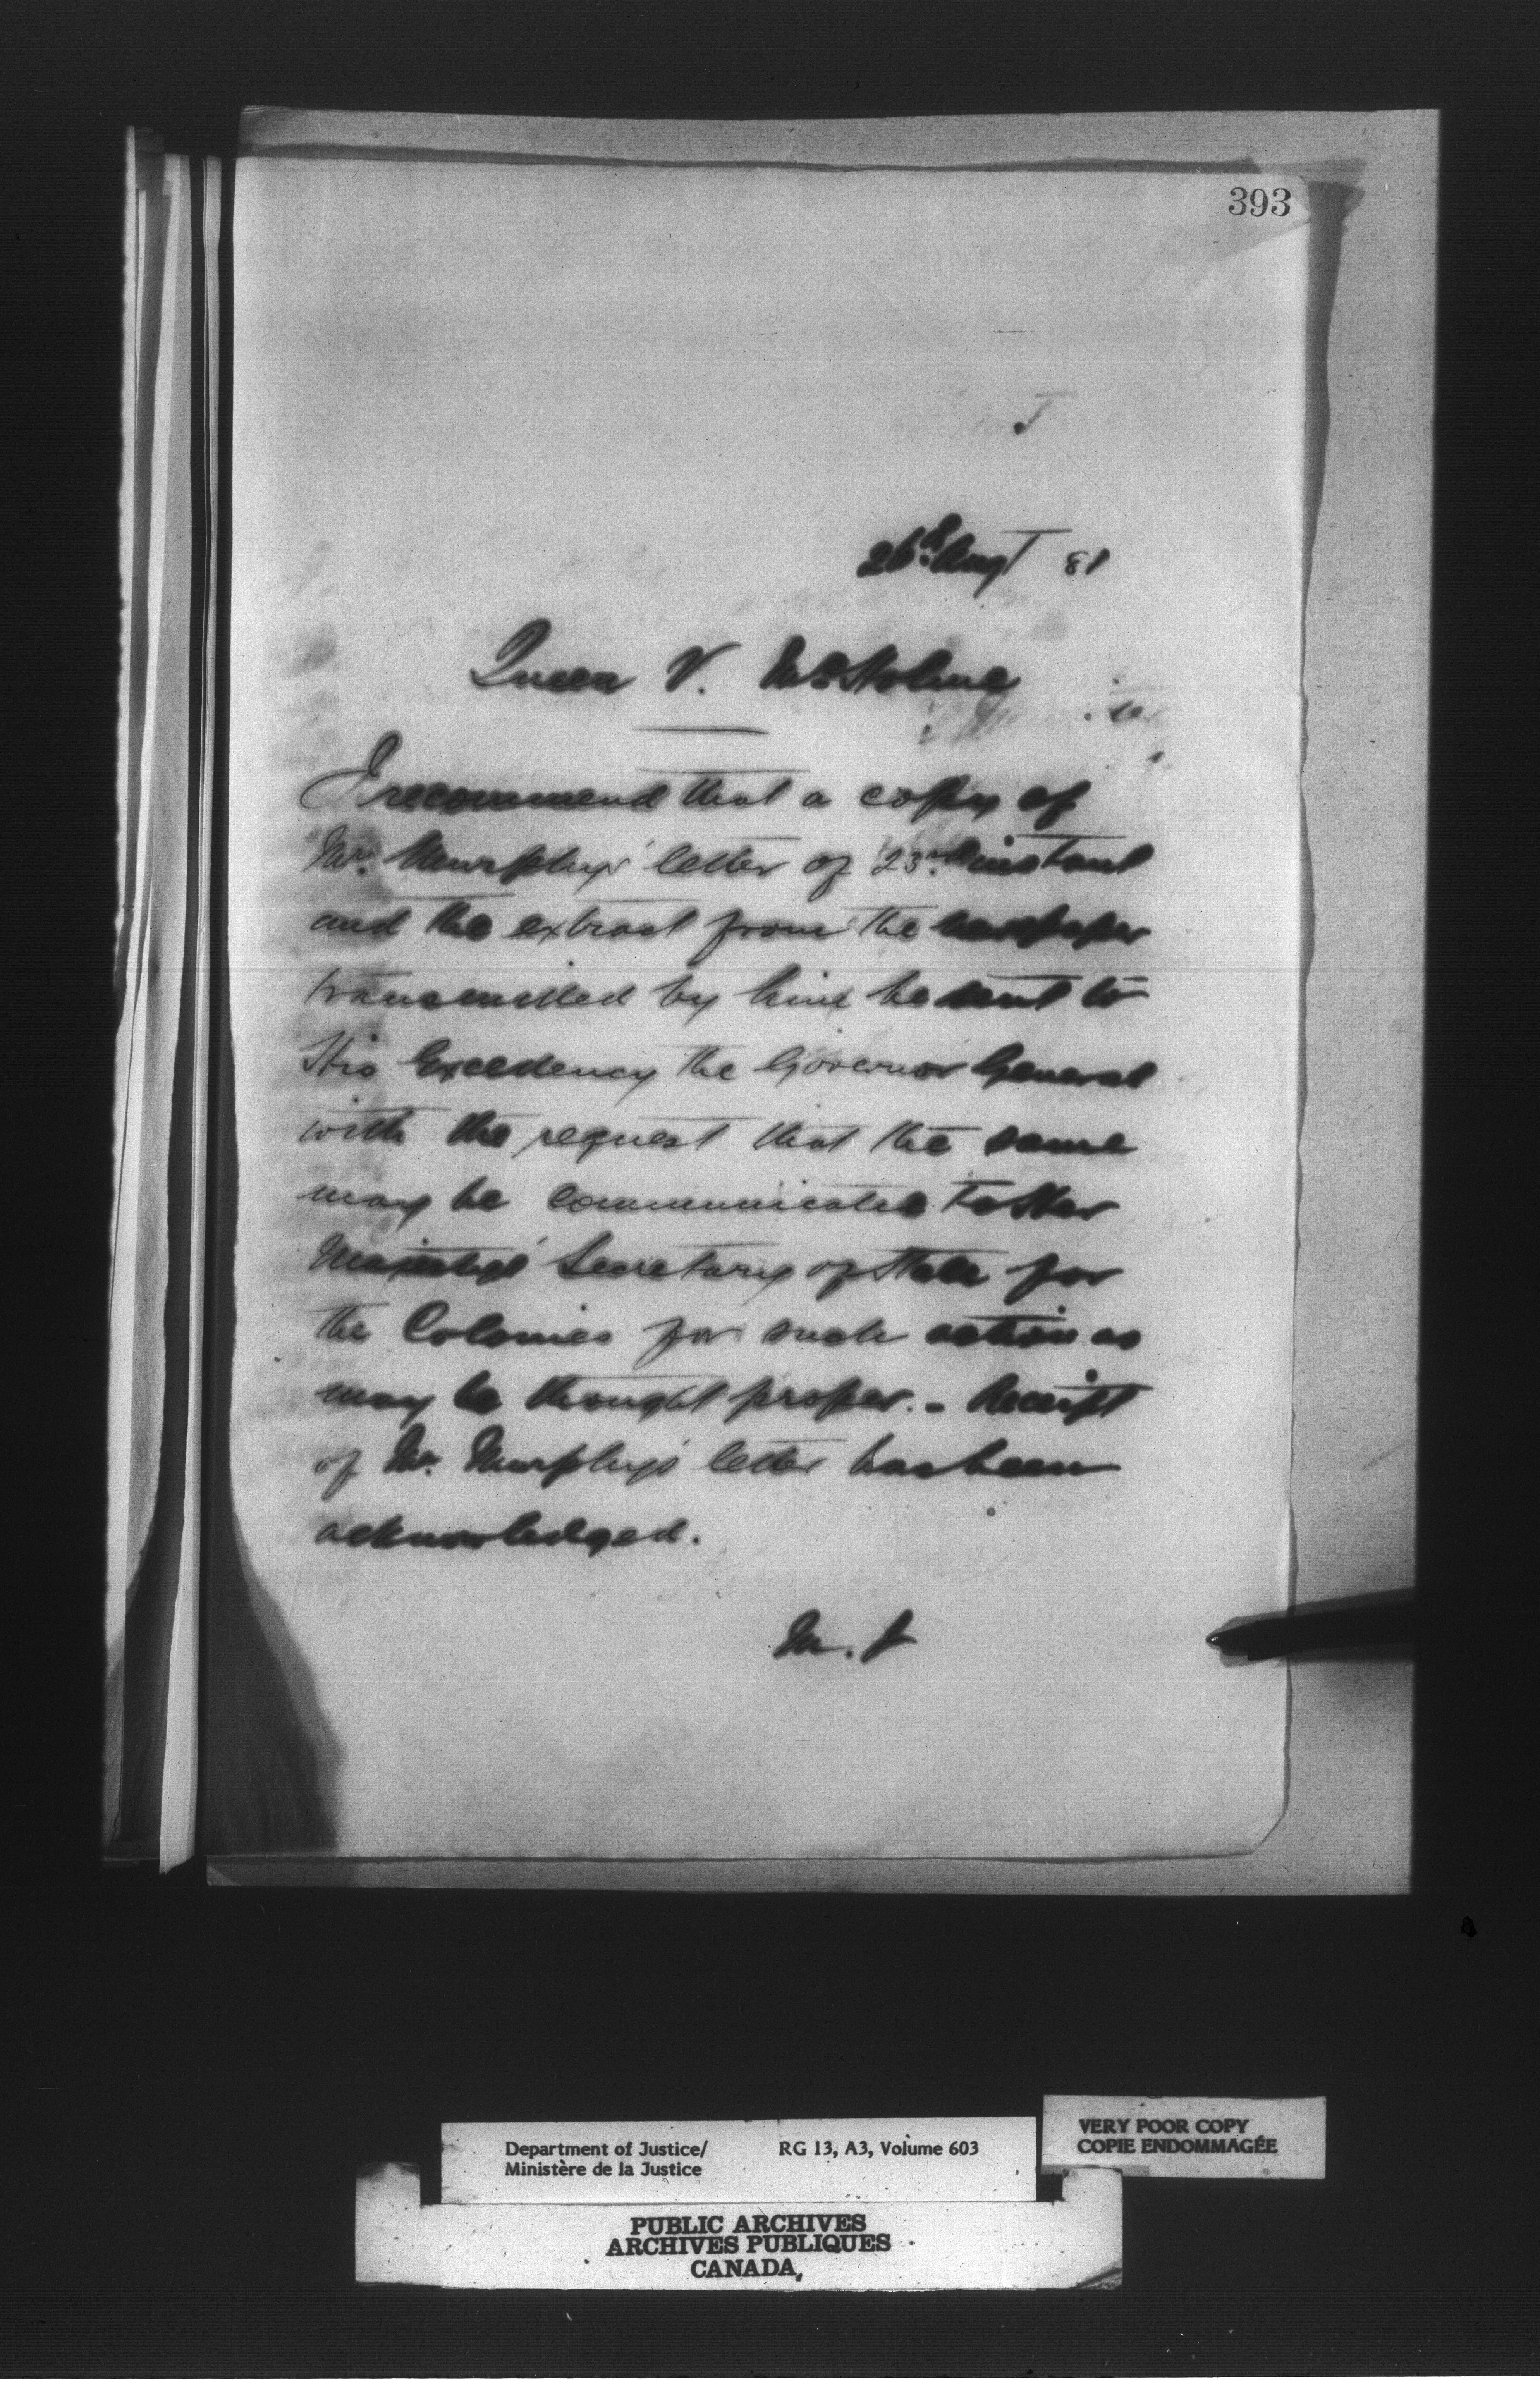 393
J
26th Augt 81
Queen V. McHolme
I recommend that a copy of
Mr. Murphys' letter of 23rd instant
and the extract from the newspaper
transmitted by him be sent to
His Excellency the Governor General
with the request that the same
may be communicated to Her
Majesty's Secretary of State for
the Colonies for such action as
may be thought proper. - Receipt
of Mr. Murphy's letter has been
acknowledged.
M. J
Department of Justice/
Ministère de la Justice
RG 13, A3, Volume 603
VERY POOR COPY
COPIE ENDOMMAGÉE
PUBLIC ARCHIVES
ARCHIVES PUBLIQUES
CANADA